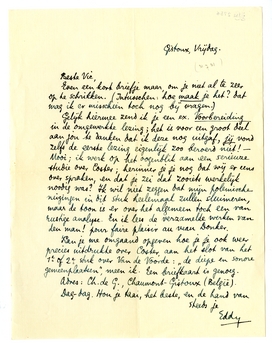 Gistoux, Vrijdag.
Beste Vic,
Even een kort briefje maar, om je niet al te zeer
op te schrikken. (Intusschen: hoe maak je het? dat
mag ik er misschien toch nog bij vragen.)
Gelijk hiermee zend ik je een ex. Voorbereiding
in de omgewerkte lezing; het is voor een groot deel
aan jou te danken dat ik deze nog uitgaf, jij vond
zelfs de eerste lezing eigenlijk zoo beroerd niet! —
Mooi; ik werk op het oogenblik aan een serieuze
studie over Coster; herinner je je nog dat wij er eens
over spraken, en dat je zei dat zooiets werkelijk
noodig was? Ik wil niet zeggen dat mijn polemische
neigingen in dit stuk heelemaal zullen sluimeren,
maar de toon is er over het algemeen toch een van
rustige analyse. En ik lees de verzamelde werken van
den man! pour faire plaisir au veau Donker.
Kan je me omgaand opgeven hoe je je ook weer
precies uitdrukte over Coster, aan het slot van het
1e of 2e werk over Van de Voorde: de diepe en sonore
gemeenplaatsen", meen ik. Een briefkaart is genoeg.
Adres: Ch. de G., Chaumont-Gistoux (België).
Dag-dag. Hou je taai, het beste, en de hand van
steeds je
Eddy